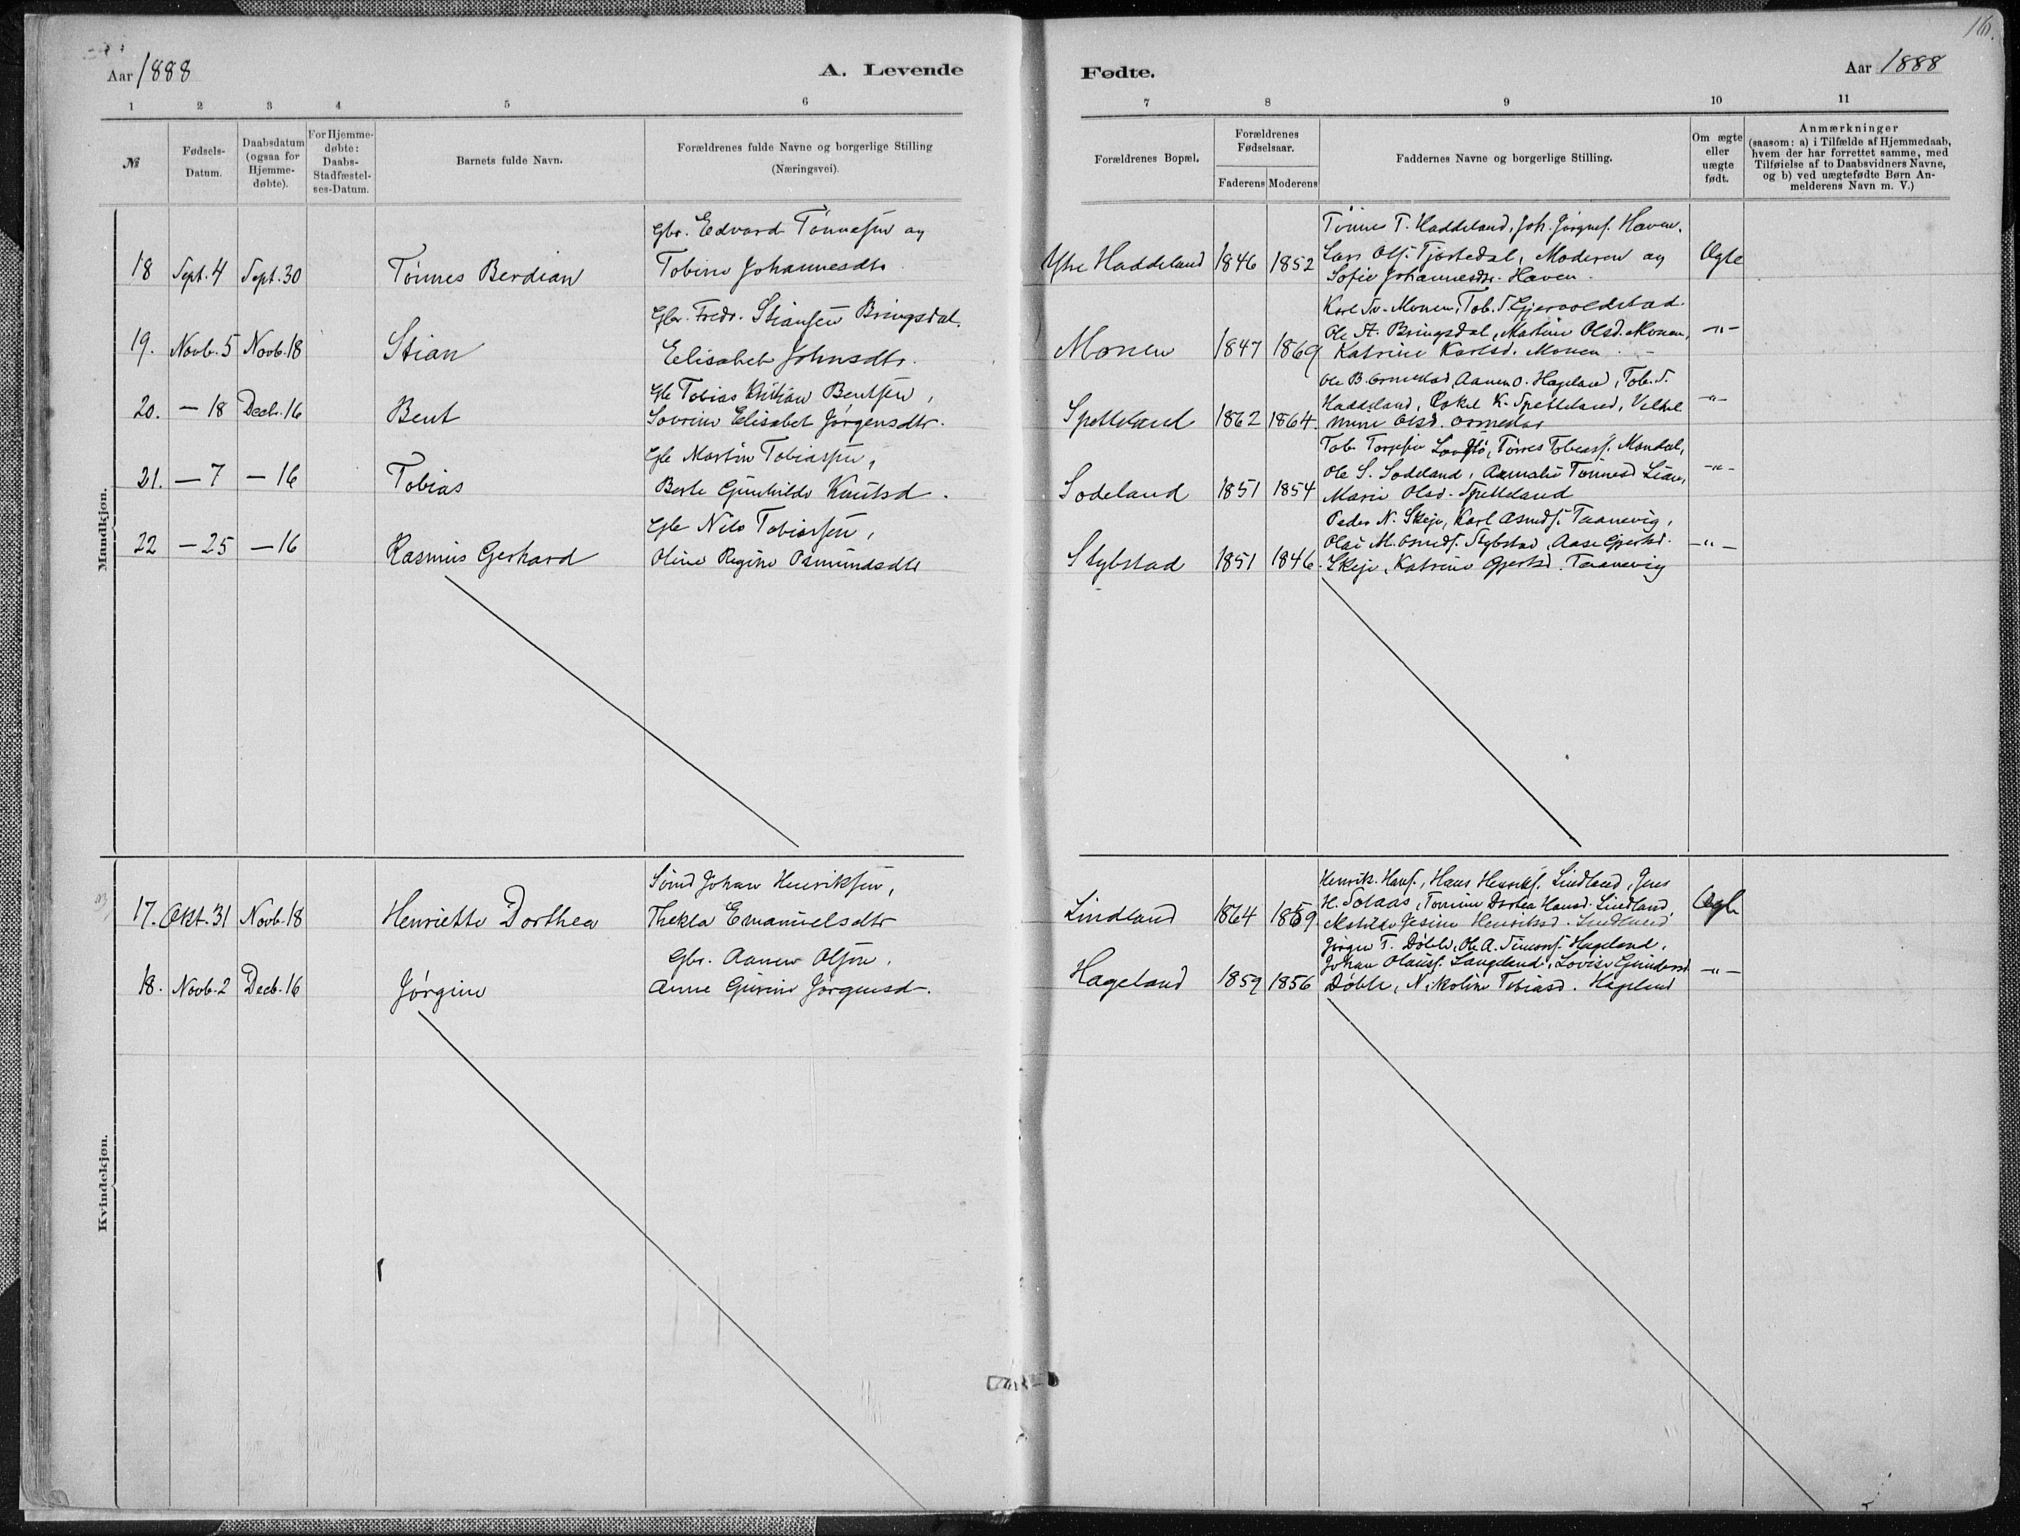 16.
Aar 1888
A. Levende
Fødte.
Aar 1888
1 2 3 4 5 6 7 8 9 10 11
№
Fødsels-
Datum.
Daabsdatum
(ogsaa for
Hjemme-
døbte).
For Hjemme-
døbte:
Daabs-
Stadfæstel-
ses-Datum.
Barnets fulde Navn.
Forældrenes fulde Navne og borgerlige Stilling
(Næringsvei).
Forældrenes Bopæl.
Forældrenes
Fødselsaar.
Faderens Moderens
Faddernes Navne og borgerlige Stilling.
Om ægte
eller
uægte
født.
Anmærkninger
(saasom: a) i Tilfælde af Hjemmedaab,
hvem der har forrettet samme, med
Tilføielse af to Daabsvidners Navne,
og b) ved uægtefødte Børn An-
melderens Navn m. V.)
Mandkjøn.
18 Sept. 4 Sept. 30 Tønnes Berdian
Gbr. Edvard Tønnesen og
Tobine Johannesdtr.
Ytre Haddeland 1846 1852
Tønnes T. Haddeland, Joh. Jørgns. Haven,
Lars Ols. Tjostedal, Moderen og
Sofie Johannesdtr. Haven.
Ægte
19. Novb. 5 Novb. 18 Stian
Gbr. Fredr. Stiansen Bringsdal,
Elisabet Johnsdtr.
Monen 1847 1869
Karl Sv. Monen, Tob. T. Gjervoldstad
Ole St. Bringsdal, Martine Olsd. Monen,
Katrine Karlsd. Monen.
-"-
20. — 18 Decb. 16 Bent
Gbr Tobias Kristian Bentsen,
Lovrine Elisabet Jørgensdtr.
Spetteland 1862 1864
Ole B. Ormestad, Aanen O. Hageland, Tob. T.
Haddeland, Eskel K. Spetteland, Vilhel
mine Olsd. Ormestad
-"-
21. — 7 — 16 Tobias
Gbr Martin Tobiassen,
Berte Gunhilde Knutsd.
Sodeland 1851 1854
Tob. Torjesen, Tørres Tobiass. Mandal,
Ole S. Sodeland, Amalie Tønnesd Lian,
Marie Olsd. Spetteland
-"-
22 — 25 — 16 Rasmus Gerhard
Gbr Nils Tobiassen,
Oline Regine Osmundsdtr
Stybstad 1851 1846
Peder N. Skeje, Karl Asmds. Taanevig,
Olai M. Osmds. Stybstad, Aase Gjertsd.
Skeje, Katrine Gjertsd. Taanevig
-"-
Kvindekjøn.
17. Okt. 31 Novb. 18 Henriette Dorthea
Sømd Johan Henriksen,
Thekla Emanuelsdtr
Lindland 1864 1859
Henrik Hans., Hans Henriks. Lindland, Jens
H. Solaas, Tomine Dortea Hansd. Lindland,
Matilde Jesine Henriksd. Lindland
Ægte
18. Novb. 2 Decb. 16 Jørgine
Gbr. Aanen Olsen,
Anne Gurine Jørgensd.
Hageland 1859 1856
Jørgen T. Døble, Ole A. Simons. Hageland,
Johan Olauss. Langeland, Lovise Gundersd
Døble, Nikoline Tobiasd. Hageland
-"-